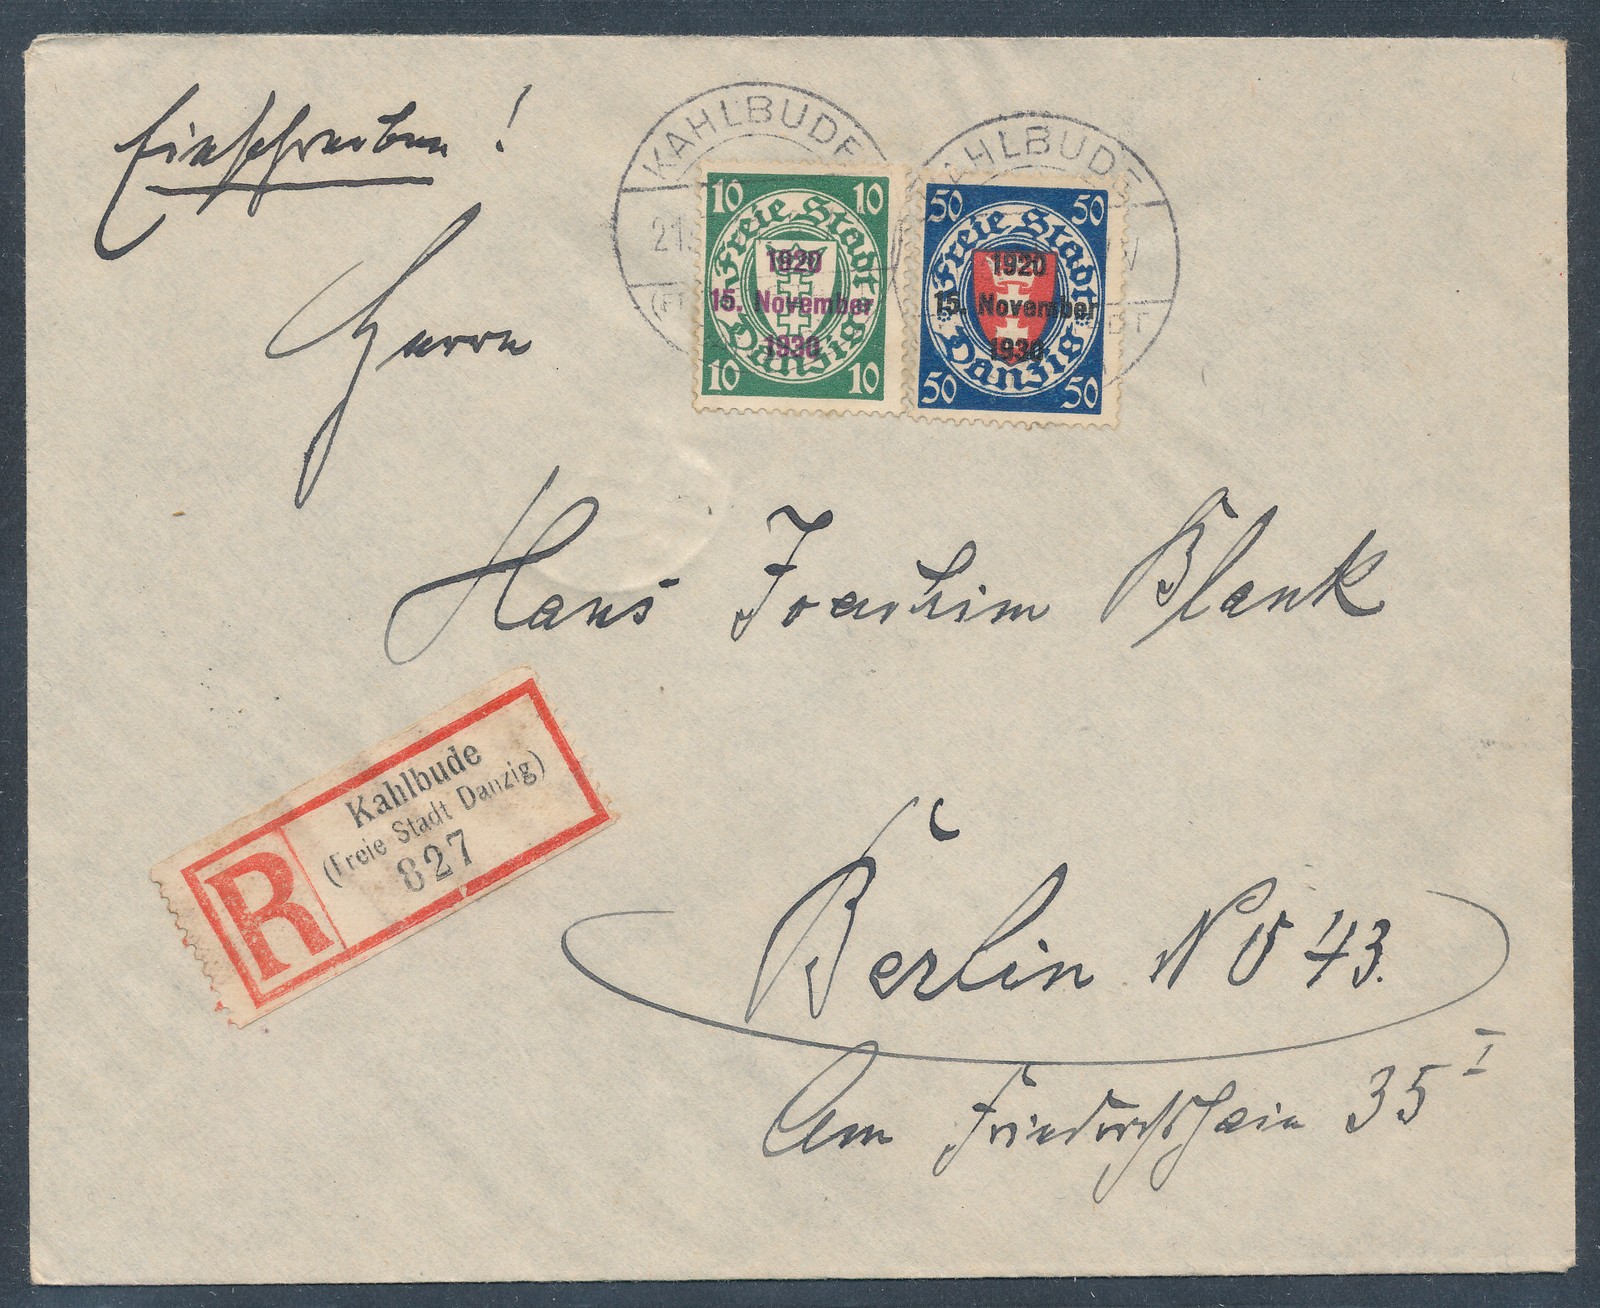 Einschreiben !
KAHLBUDE
21.
KAHLBUDE
10 10
Freie Stadt Danzig
1920
15. November
1930
10 10
50 50
Freie Stadt Danzig
1920
15. November
1930
50 50
Herrn
Hans Joachim Blank
Kahlbude
(Freie Stadt Danzig)
R 827
Berlin NO 43.
Am Friedrichshain 35 I